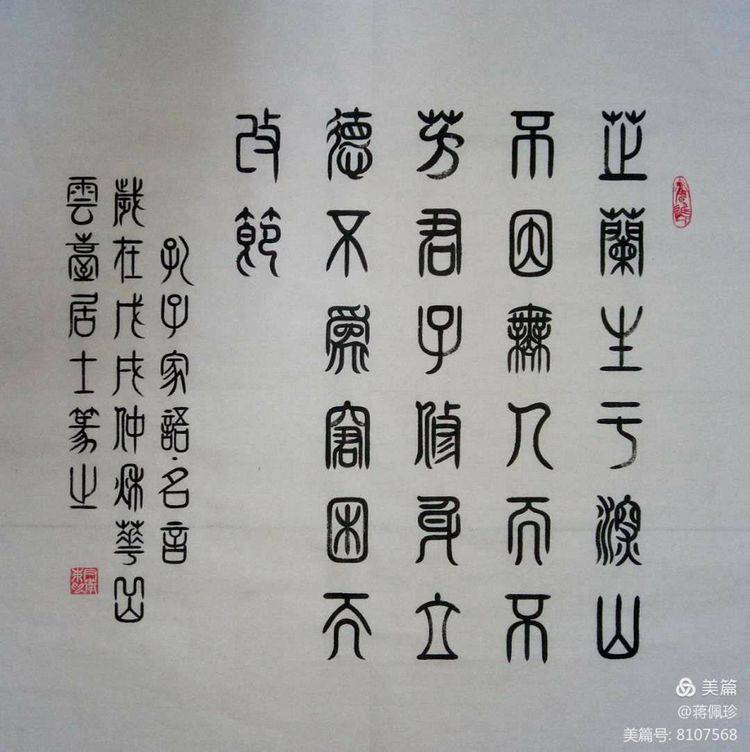 芷蘭生于深山
不因無人而不
芳君子修身立
德不為窘困而
改節
孔子家語·名言
歲在戊戌仲秋華山
雲臺居士篆之
美篇
@蒋佩珍
美篇号: 8107568